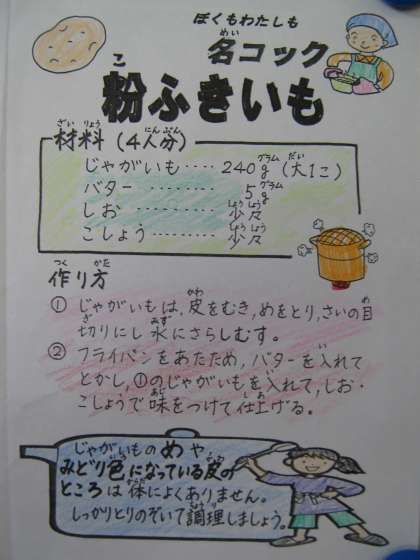 ぼくもわたしも
名コック
粉ふきいも
材料（4人分）
じゃがいも････240g（大1こ）
バター ･････････ 5g
しお ･･････････ 少々
こしょう････････ 少々
作り方
① じゃがいもは，皮をむき，めをとり，さいの目
切りにし水にさらしむす。
② フライパンをあたため，バターを入れて
とかし，①のじゃがいもを入れて，しお・
こしょうで味をつけて仕上げる。
じゃがいものめや
みどり色になっている皮の
ところは体によくありません。
しっかりとりのぞいて調理しましょう。